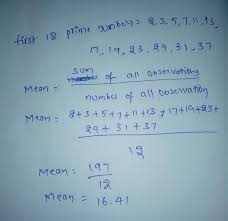 first 12 prime numbers = 2,3,5,7,11,13,
17, 19, 23, 29, 31, 37
sum
Mean = of all observations
number of all observation
Mean = 2+3+5+7+11+13+17+19+23+
29+31+37
12
Mean = 197
12
Mean = 16.41